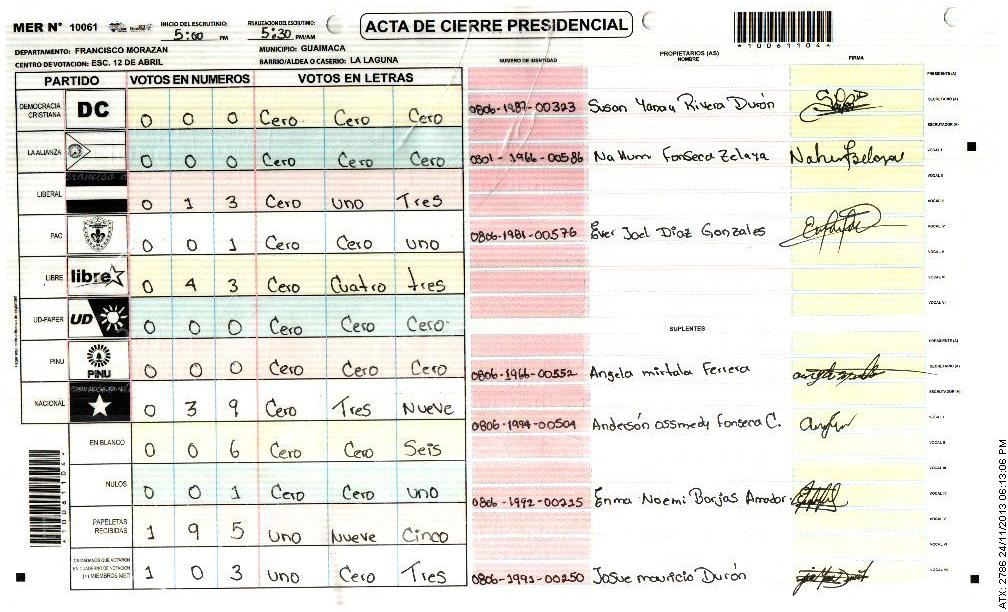 MER N° 10061 INICIO DEL ESCRUTINIO: 5:00 PM FINALIZACION DEL ESCRUTINIO: 5:30 PM/AM ACTA DE CIERRE PRESIDENCIAL
*10061104*
DEPARTAMENTO: FRANCISCO MORAZAN MUNICIPIO: GUAIMACA
CENTRO DE VOTACION: ESC. 12 DE ABRIL BARRIO/ALDEA O CASERIO: LA LAGUNA
NUMERO DE IDENTIDAD PROPIETARIOS (AS) NOMBRE FIRMA
PARTIDO VOTOS EN NUMEROS VOTOS EN LETRAS
DEMOCRACIA CRISTIANA DC 0 0 0 Cero Cero Cero
LA ALIANZA 0 0 0 Cero Cero Cero
LIBERAL 0 1 3 Cero uno Tres
PAC 0 0 1 Cero Cero uno
LIBRE libre 0 4 3 Cero Cuatro tres
UD-FAPER UD 0 0 0 Cero Cero Cero
PINU PINU 0 0 0 Cero Cero Cero
NACIONAL 0 3 9 Cero Tres Nueve
EN BLANCO 0 0 6 Cero Cero Seis
NULOS 0 0 1 Cero Cero uno
PAPELETAS RECIBIDAS 1 9 5 uno Nueve Cinco
CIUDADANOS QUE VOTARON EN CUADERNO DE VOTACION (+) MIEMBROS MER 1 0 3 uno Cero Tres
PRESIDENTE (A)
0806-1987-00323 SECRETARIO (A)
ESCRUTADOR (A)
0301-1966-00586 Nahum Fonseca Zelaya VOCAL I
VOCAL II
VOCAL III
0806-1981-00576 Ever Joel Diaz Gonzales VOCAL IV
VOCAL V
VOCAL VI
SUPLENTES
PRESIDENTE (A)
0806-1966-00552 Angela mirtala Ferrera SECRETARIO (A)
ESCRUTADOR (A)
0806-1994-00504 Anderson ossmedy Fonseca C. VOCAL I
VOCAL II
VOCAL III
0806-1992-00215 Enma Noemi Borjas Amador VOCAL IV
VOCAL V
VOCAL VI
0806-1991-00250 Josue mauricio Durón
*10061104*
ATX: 2786 24/11/2013 06:13:06 PM